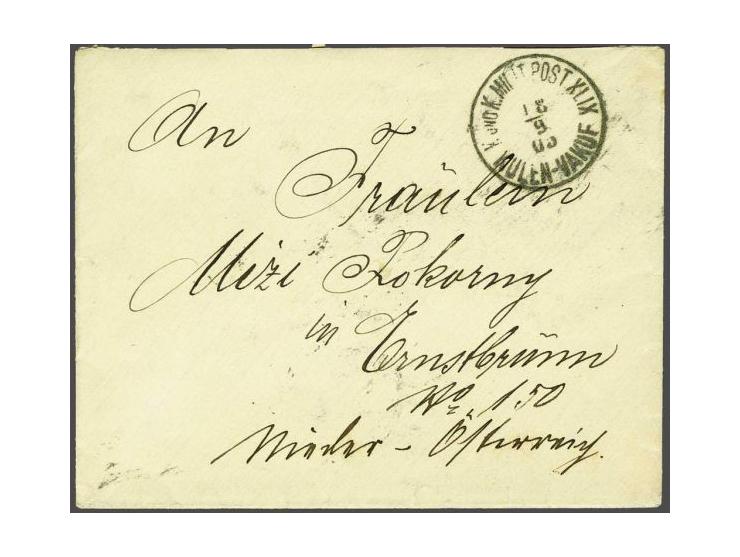 K. UND K. MILIT. POST XLIX
13
5
03
KULEN-VAKUF
An
Fräulein
Mizi Pokorny
in
Ernstbrunn
No. 150
Nieder-Österreich.